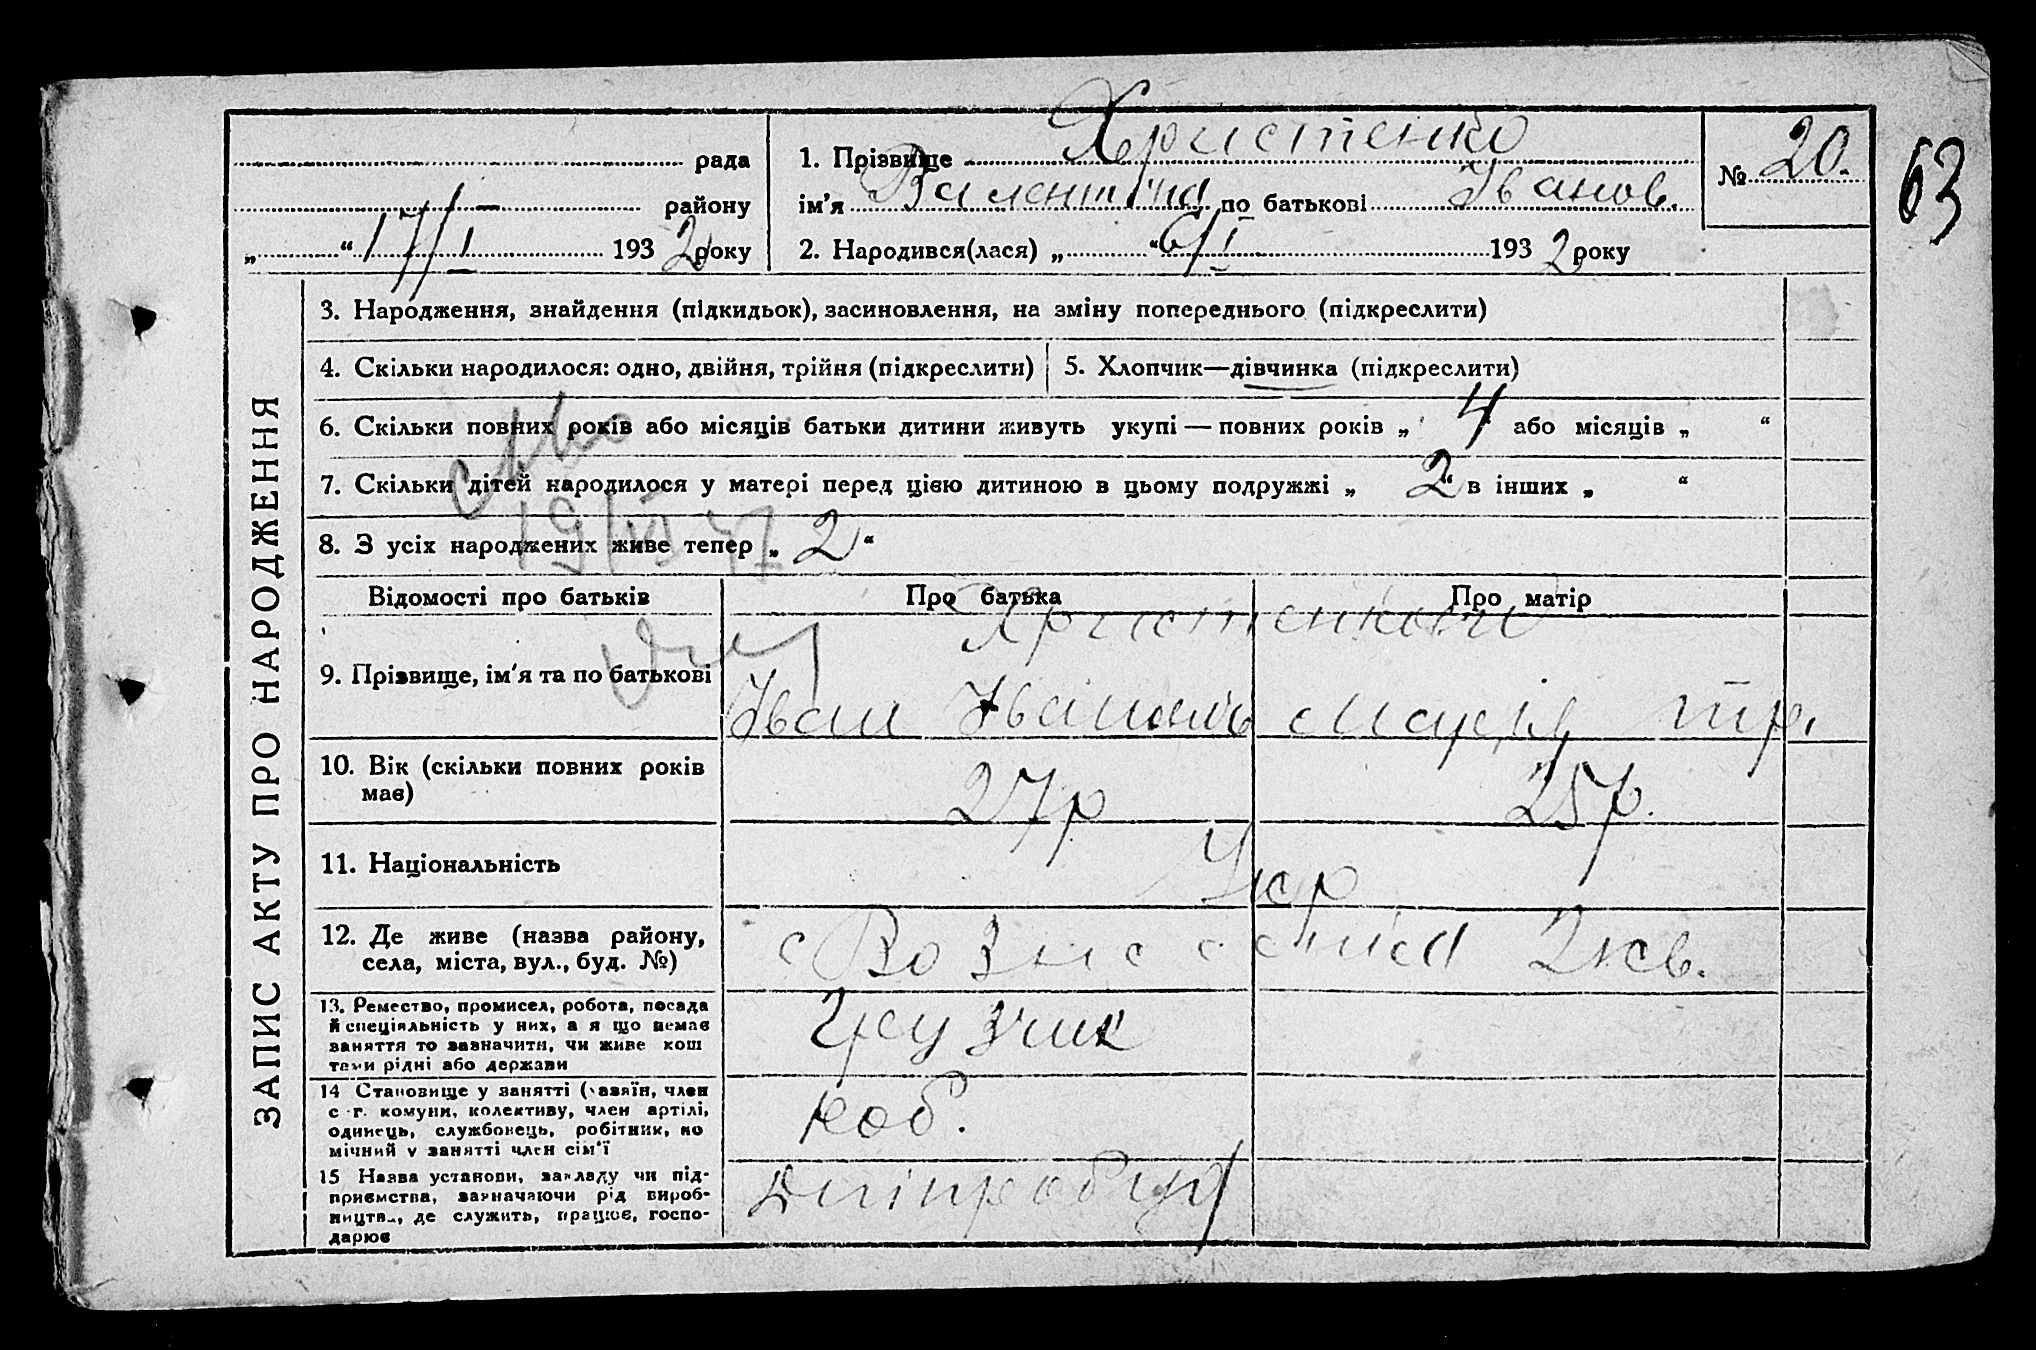 рада
району
„ “ 17/I 1932 року
1. Прізвище Христенко
ім'я Валентина по батькові Іванов.
2. Народився(лася) „ “ 6/I 1932 року
№ 20.
63
ЗАПИС АКТУ ПРО НАРОДЖЕННЯ
3. Народження, знайдення (підкидьок), засиновлення, на зміну попереднього (підкреслити)
4. Скільки народилося: одно, двійня, трійня (підкреслити)
5. Хлопчик—дівчинка (підкреслити)
6. Скільки повних років або місяців батьки дитини живуть укупі — повних років „ 4 “ або місяців „ “
7. Скільки дітей народилося у матері перед цією дитиною в цьому подружжі „ 2 “ в інших „ “
8. З усіх народжених живе тепер „ 2 “
19/VI 47
Відомості про батьків
Про батька
Про матір
9. Прізвище, ім'я та по батькові
Христенкови
Іван Іванов
Марія Тр.
10. Вік (скільки повних років
має)
27р
25р.
11. Національність
Укр
12. Де живе (назва району,
села, міста, вул., буд. №)
с Вознесенка 2кв.
13. Ремество, промисел, робота, посада
й спеціяльність у них, а я що немає
заняття то зазначити, чи живе кош
тами рідні або держави
Грузчик
14 Становище у занятті (хазяїн, член
с-г. комуни, колективу, член артілі,
одинець, службовець, робітник, по
мічний у занятті член сім'ї
роб.
15 Назва установи, закладу чи під-
приємства, зазначаючи рід вироб-
ництва, де служить, працює, госпо-
дарює
Дніпробуд